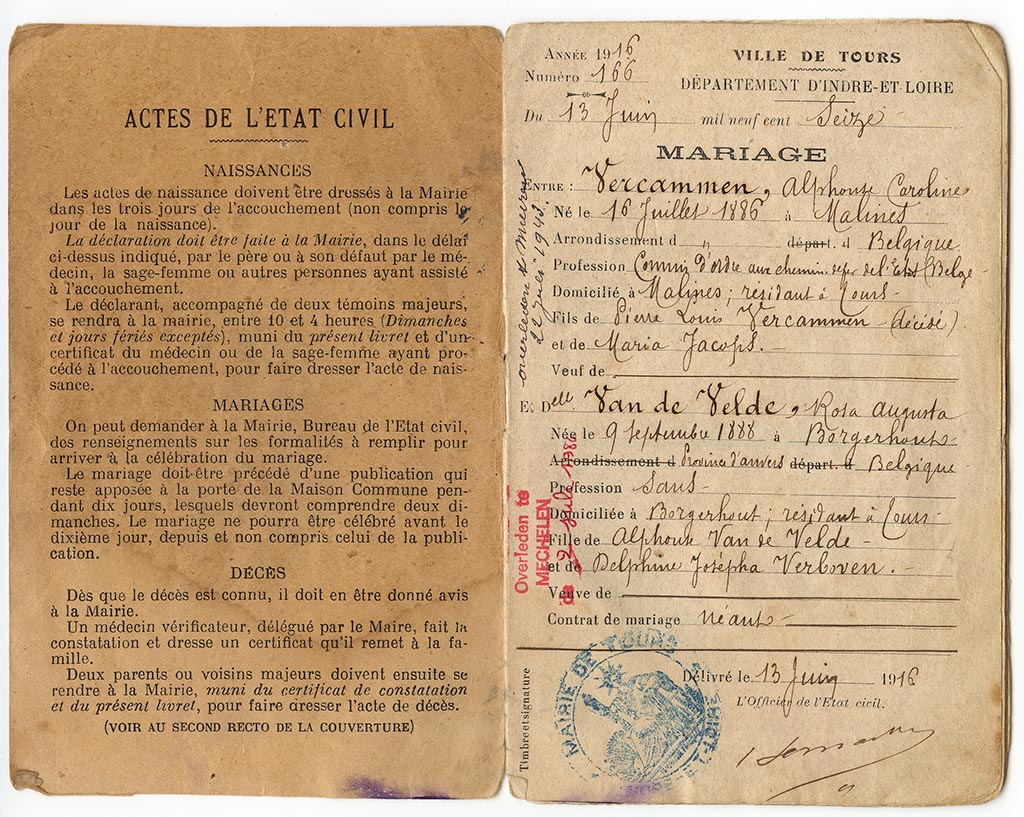 ACTES DE L'ETAT CIVIL
NAISSANCES
Les actes de naissance doivent être dressés à la Mairie
dans les trois jours de l'accouchement (non compris le
jour de la naissance).
La déclaration doit être faite à la Mairie, dans le délai
ci-dessus indiqué, par le père ou à son défaut par le mé-
decin, la sage-femme ou autres personnes ayant assisté
à l'accouchement.
Le déclarant, accompagné de deux témoins majeurs,
se rendra à la mairie, entre 10 et 4 heures (Dimanches
et jours fériés exceptés), muni du présent livret et d'un
certificat du médecin ou de la sage-femme ayant pro-
cédé à l'accouchement, pour faire dresser l'acte de nais-
sance.
MARIAGES
On peut demander à la Mairie, Bureau de l'Etat civil,
des renseignements sur les formalités à remplir pour
arriver à la célébration du mariage.
Le mariage doit être précédé d'une publication qui
reste apposée à la porte de la Maison Commune pen-
dant dix jours, lesquels devront comprendre deux di-
manches. Le mariage ne pourra être célébré avant le
dixième jour, depuis et non compris celui de la publi-
cation.
DÉCÈS
Dès que le décès est connu, il doit en être donné avis
à la Mairie.
Un médecin vérificateur, délégué par le Maire, fait la
constatation et dresse un certificat qu'il remet à la fa-
mille.
Deux parents ou voisins majeurs doivent ensuite se
rendre à la Mairie, muni du certificat de constatation
et du présent livret, pour faire dresser l'acte de décès.
(VOIR AU SECOND RECTO DE LA COUVERTURE)
ANNÉE 1916
Numéro 166
VILLE DE TOURS
DÉPARTEMENT D'INDRE-ET-LOIRE
Du 13 Juin mil neuf cent Seize
MARIAGE
ENTRE : Vercammen, Alphonse Caroline
Né le 16 Juillet 1886 à Malines
Arrondissement d " départ. d Belgique
Profession Commis d'ordre aux chemins de fer de l'Etat Belge
Domicilié à Malines; résidant à Tours
Fils de Pierre Louis Vercammen (décédé)
et de Maria Jacops.
Veuf de
Et Delle Van de Velde, Rosa Augusta
Née le 9 septembre 1888 à Borgerhout
Arrondissement d Province d'anvers départ. d Belgique
Profession Sans
Domiciliée à Borgerhout; résidant à Tours
Fille de Alphonse Van de Velde
et de Delphine Josépha Verboven.
Veuve de
Contrat de mariage néant
Délivré le 13 Juin 1916
L'Officier de l'Etat civil.
Timbre et signature
MAIRIE DE TOURS
overleden
1943.
Overleden te
MECHELEN
de 2 juli